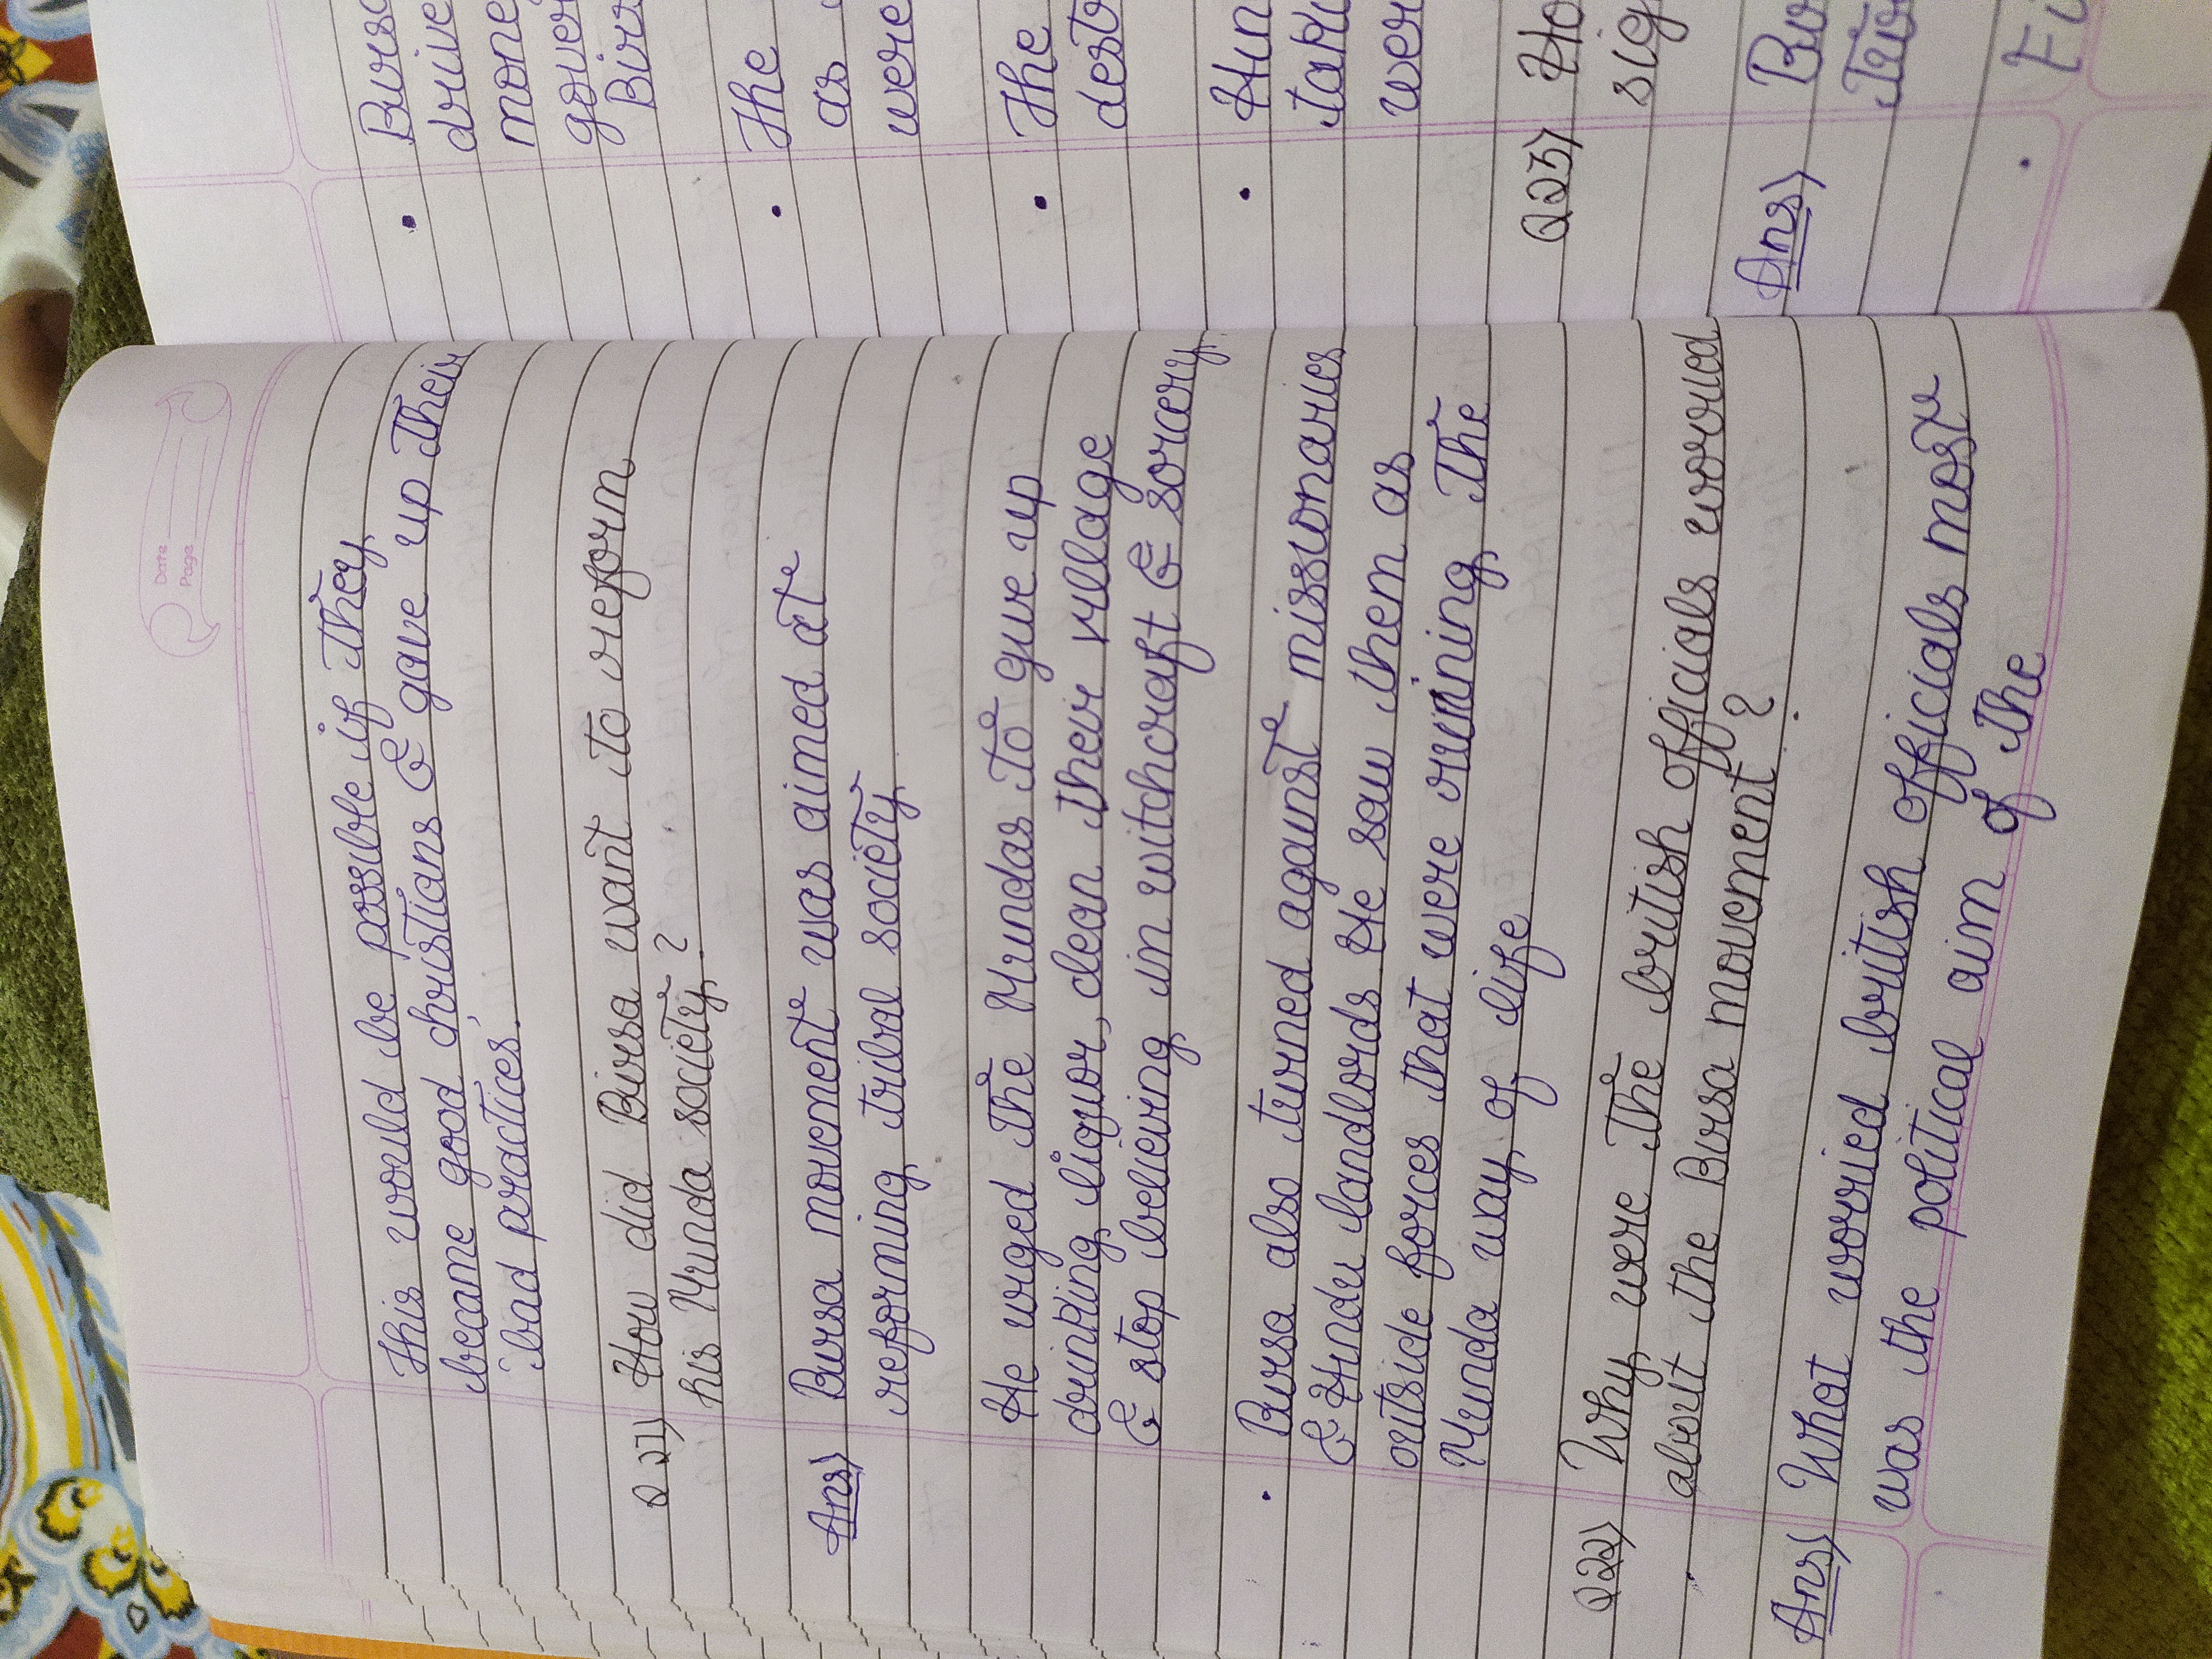 Date
Page
This would be possible if they
became good christians & gave up their
'bad practices'.
Q 21) How did Birsa want to reform
his Munda society ?
Ans) Birsa movement was aimed at
reforming tribal society
He urged the Mundas to give up
drinking liquor, clean their village
& stop believing in witchcraft & sorcery.
• Birsa also turned against missionaries
& Hindu landlords He saw them as
outside forces that were ruining the
Munda way of life
Q22) Why were the british officials worried
about the Birsa movement ?
Ans) What worried british officials most
was the political aim of the
• Birsa
drive
mone
gover
Birs
• The
as
were
• The
dest
• Hin
taki
wer
Q23) Ho
sig
Ans) Bi
two
• Fi